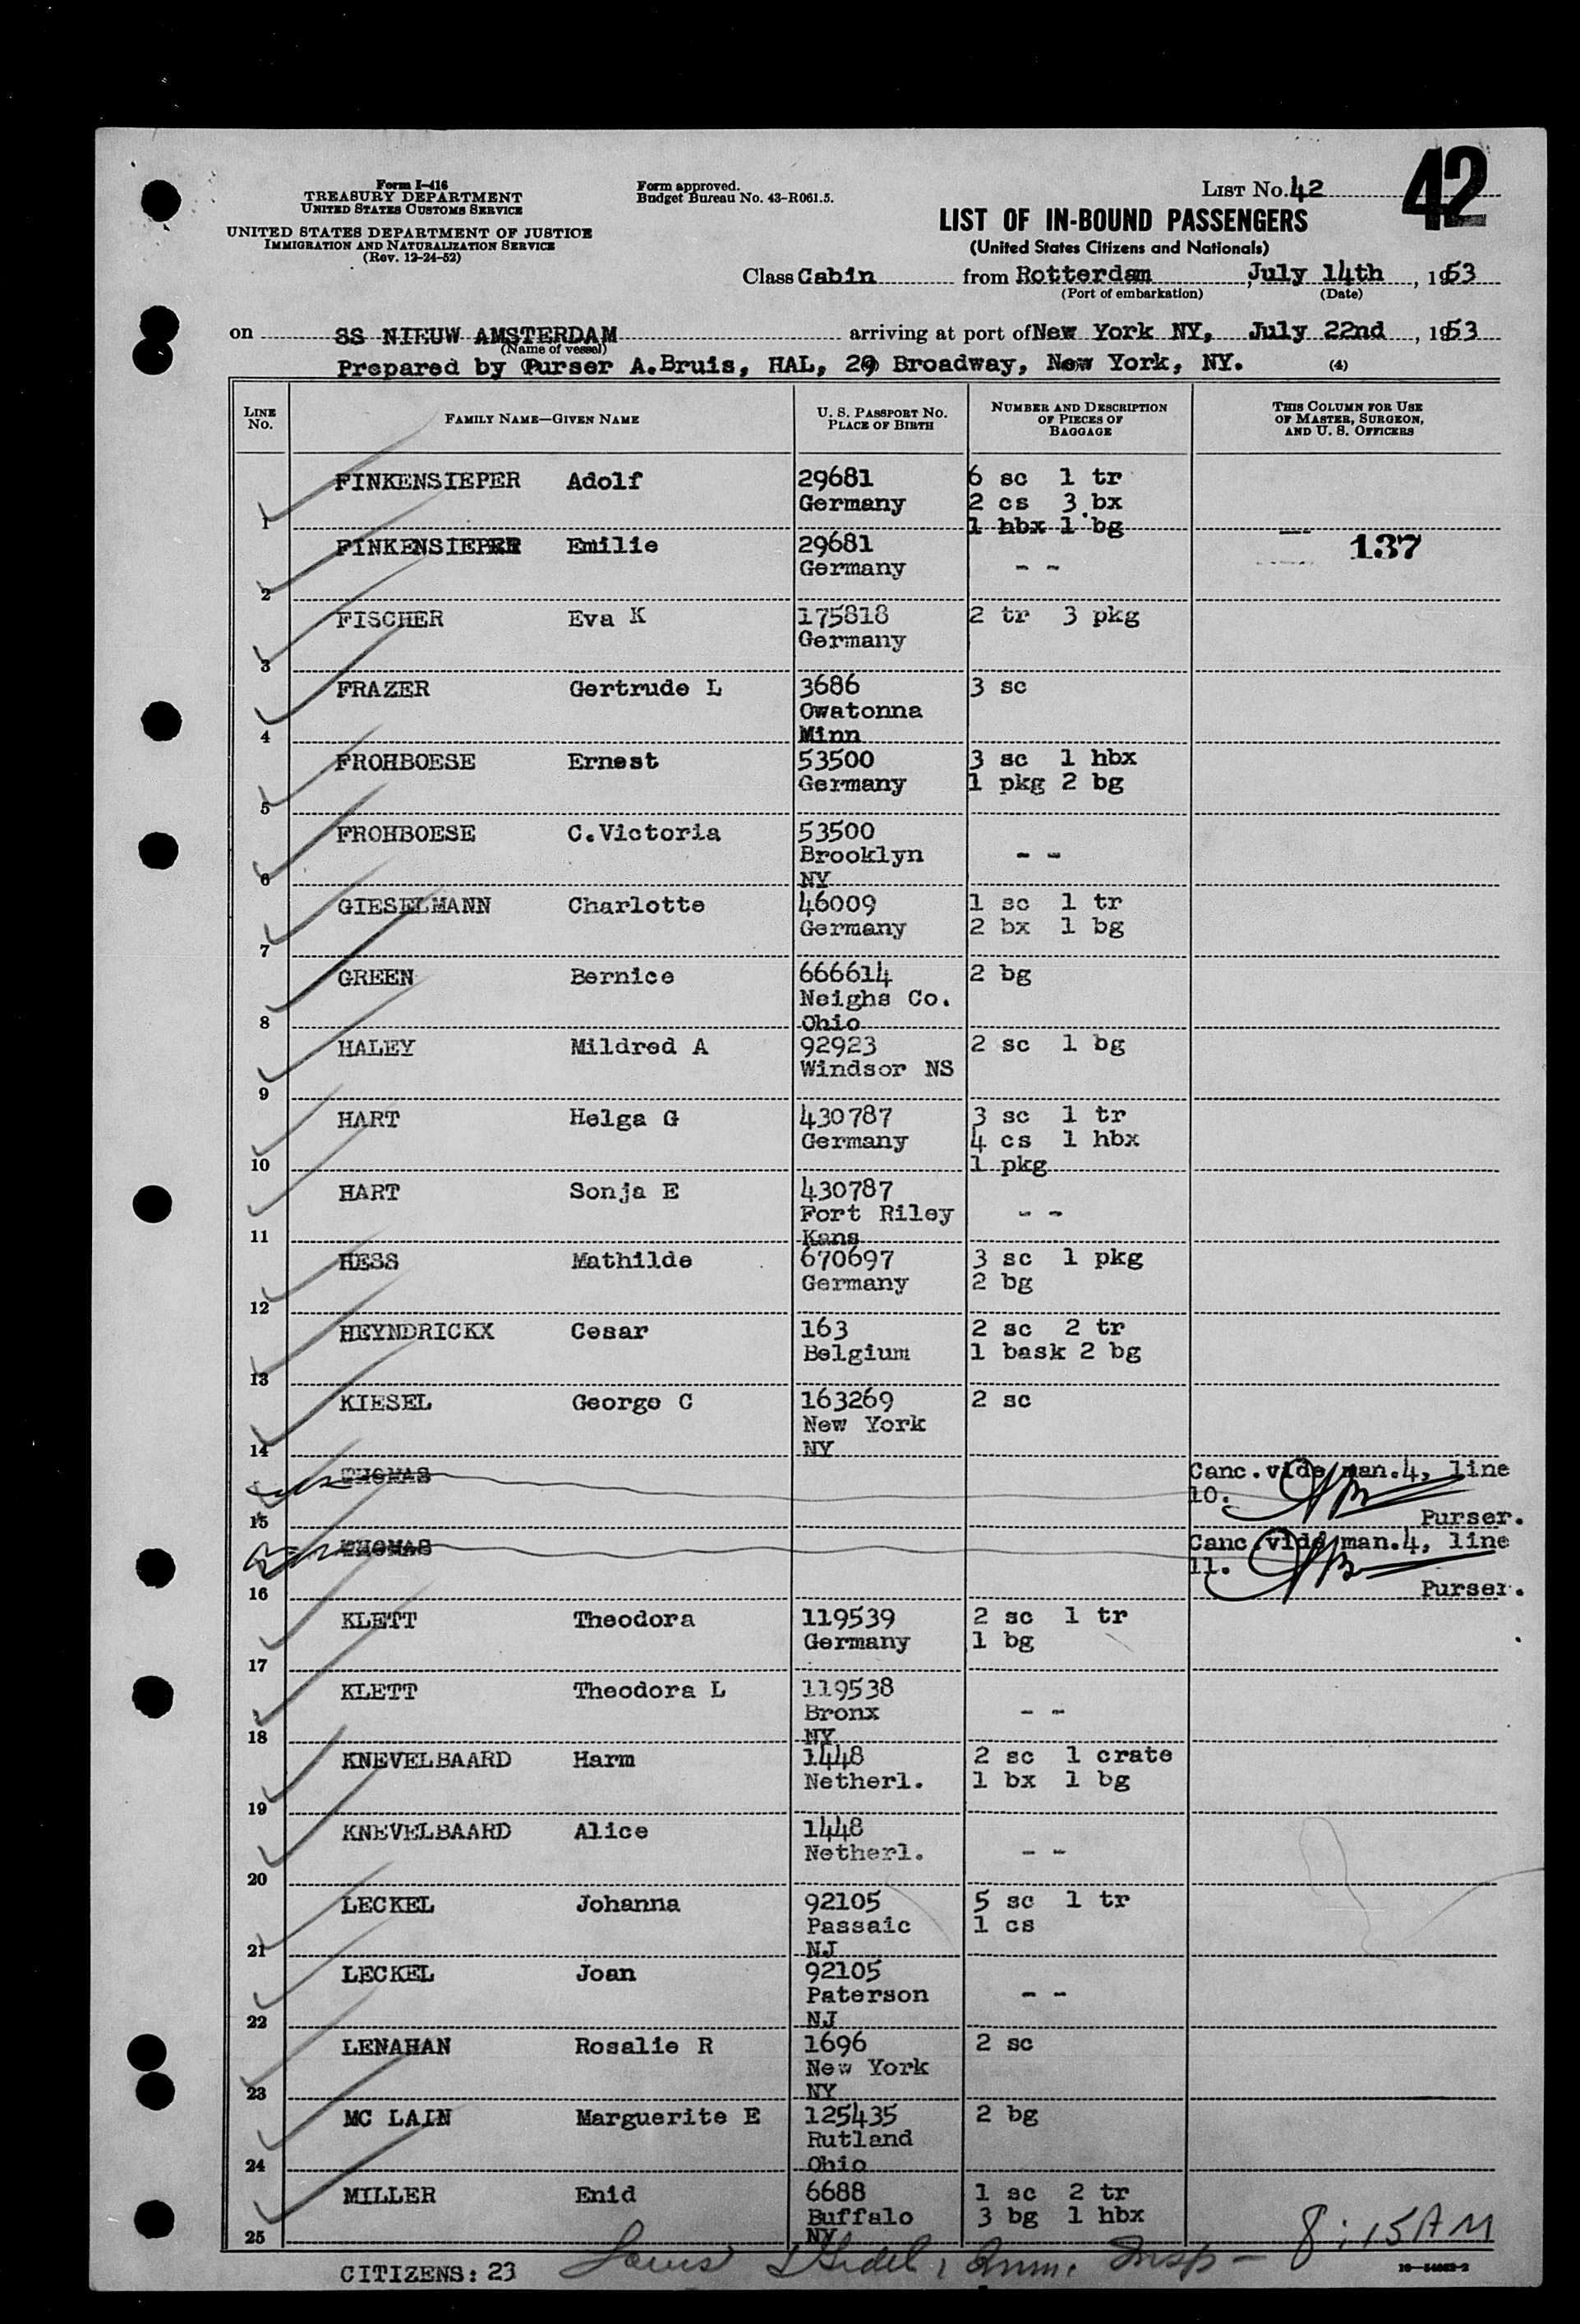 42
Form I-416
TREASURY DEPARTMENT
UNITED STATES CUSTOMS SERVICE
UNITED STATES DEPARTMENT OF JUSTICE
IMMIGRATION AND NATURALIZATION SERVICE
(Rev. 12-24-52)
Form approved.
Budget Bureau No. 43-R061.5.
LIST NO. 42
LIST OF IN-BOUND PASSENGERS
(United States Citizens and Nationals)
Class Cabin from Rotterdam, July 14th, 1953
(Port of embarkation) (Date)
on SS NIEUW AMSTERDAM arriving at port of New York NY, July 22nd, 1953
(Name of vessel)
Prepared by Purser A.Bruis, HAL, 29 Broadway, New York, NY. (4)
LINE No. FAMILY NAME—GIVEN NAME U. S. PASSPORT NO. PLACE OF BIRTH NUMBER AND DESCRIPTION OF PIECES OF BAGGAGE THIS COLUMN FOR USE OF MASTER, SURGEON, AND U. S. OFFICERS
FINKENSIEPER Adolf 29681 6 sc 1 tr
Germany 2 cs 3 bx
1 1 hbx 1 bg
FINKENSIEPER Emilie 29681 137
Germany - -
2
FISCHER Eva K 175818 2 tr 3 pkg
Germany
3
FRAZER Gertrude L 3686 3 sc
Owatonna
4 Minn
FROHBOESE Ernest 53500 3 sc 1 hbx
Germany 1 pkg 2 bg
5
FROHBOESE C.Victoria 53500
Brooklyn - -
6 NY
GIESELMANN Charlotte 46009 1 sc 1 tr
Germany 2 bx 1 bg
7
GREEN Bernice 666614 2 bg
Neighs Co.
8 Ohio
HALEY Mildred A 92923 2 sc 1 bg
Windsor NS
9
HART Helga G 430787 3 sc 1 tr
Germany 4 cs 1 hbx
10 1 pkg
HART Sonja E 430787
Fort Riley - -
11 Kans
HESS Mathilde 670697 3 sc 1 pkg
Germany 2 bg
12
HEYNDRICKX Cesar 163 2 sc 2 tr
Belgium 1 bask 2 bg
13
KIESEL George C 163269 2 sc
New York
14 NY
THOMAS Canc.vide man.4, line
10.
15 Purser.
THOMAS Canc.vide man.4, line
11.
16 Purser.
KLETT Theodora 119539 2 sc 1 tr
Germany 1 bg
17
KLETT Theodora L 119538
Bronx - -
18 NY
KNEVELBAARD Harm 1448 2 sc 1 crate
Netherl. 1 bx 1 bg
19
KNEVELBAARD Alice 1448
Netherl. - -
20
LECKEL Johanna 92105 5 sc 1 tr
Passaic 1 cs
21 NJ
LECKEL Joan 92105
Paterson - -
22 NJ
LENAHAN Rosalie R 1696 2 sc
New York
23 NY
MC LAIN Marguerite E 125435 2 bg
Rutland
24 Ohio
MILLER Enid 6688 1 sc 2 tr
Buffalo 3 bg 1 hbx
25 NY 8:15 AM
CITIZENS: 23 Louis Imm. Insp -